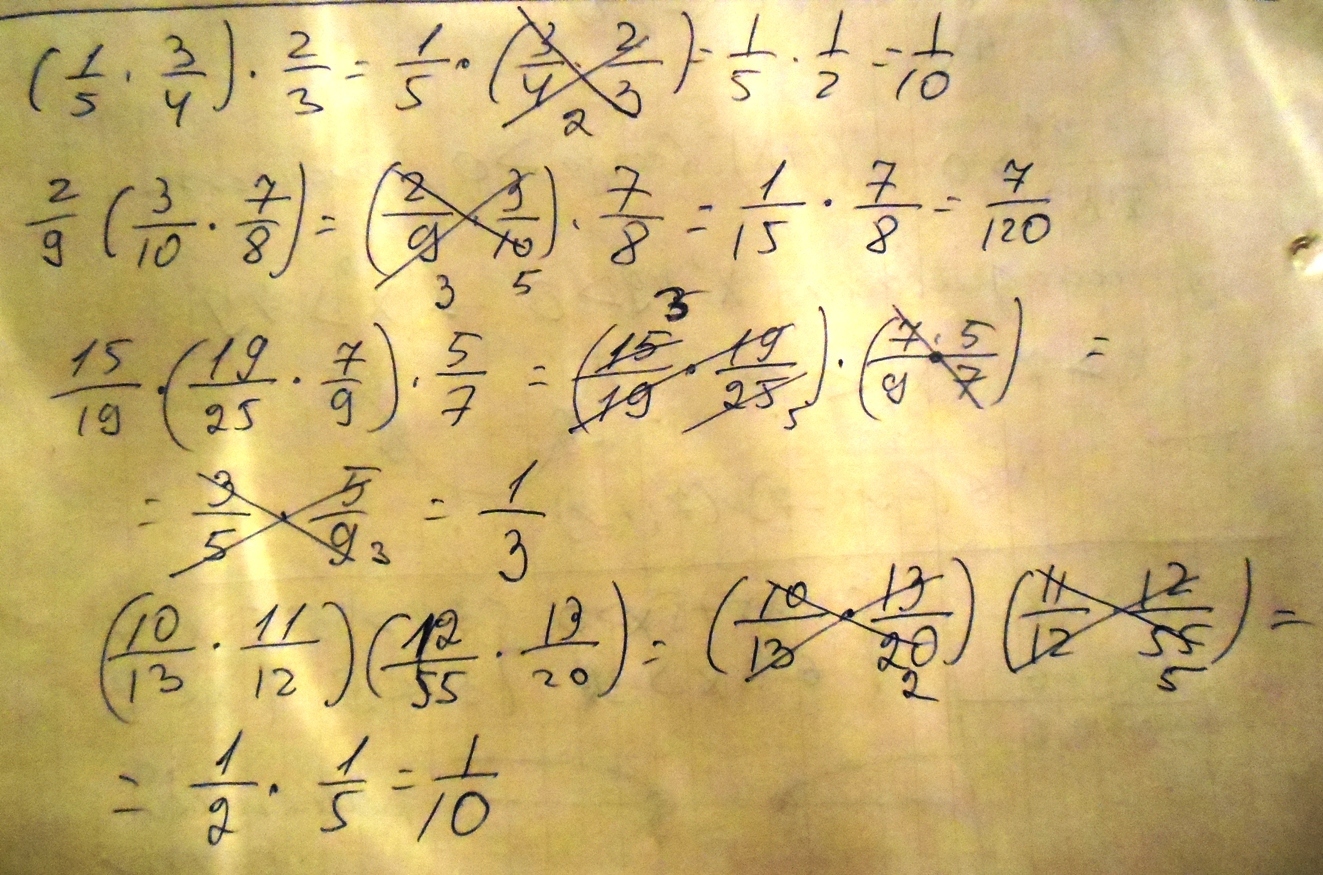 (1/5 · 3/4) · 2/3 = 1/5 · (3/4 · 2/3) = 1/5 · 1/2 = 1/10
2
2/9 (3/10 · 7/8) = (2/9 · 3/10) · 7/8 = 1/15 · 7/8 = 7/120
3 5
3
15/19 · (19/25 · 7/9) · 5/7 = (15/19 · 19/25) · (7/9 · 5/7) =
5
= 3/5 · 5/9 = 1/3
3
(10/13 · 11/12) (12/55 · 13/20) = (10/13 · 13/20) (11/12 · 12/55) =
2 5
= 1/2 · 1/5 = 1/10